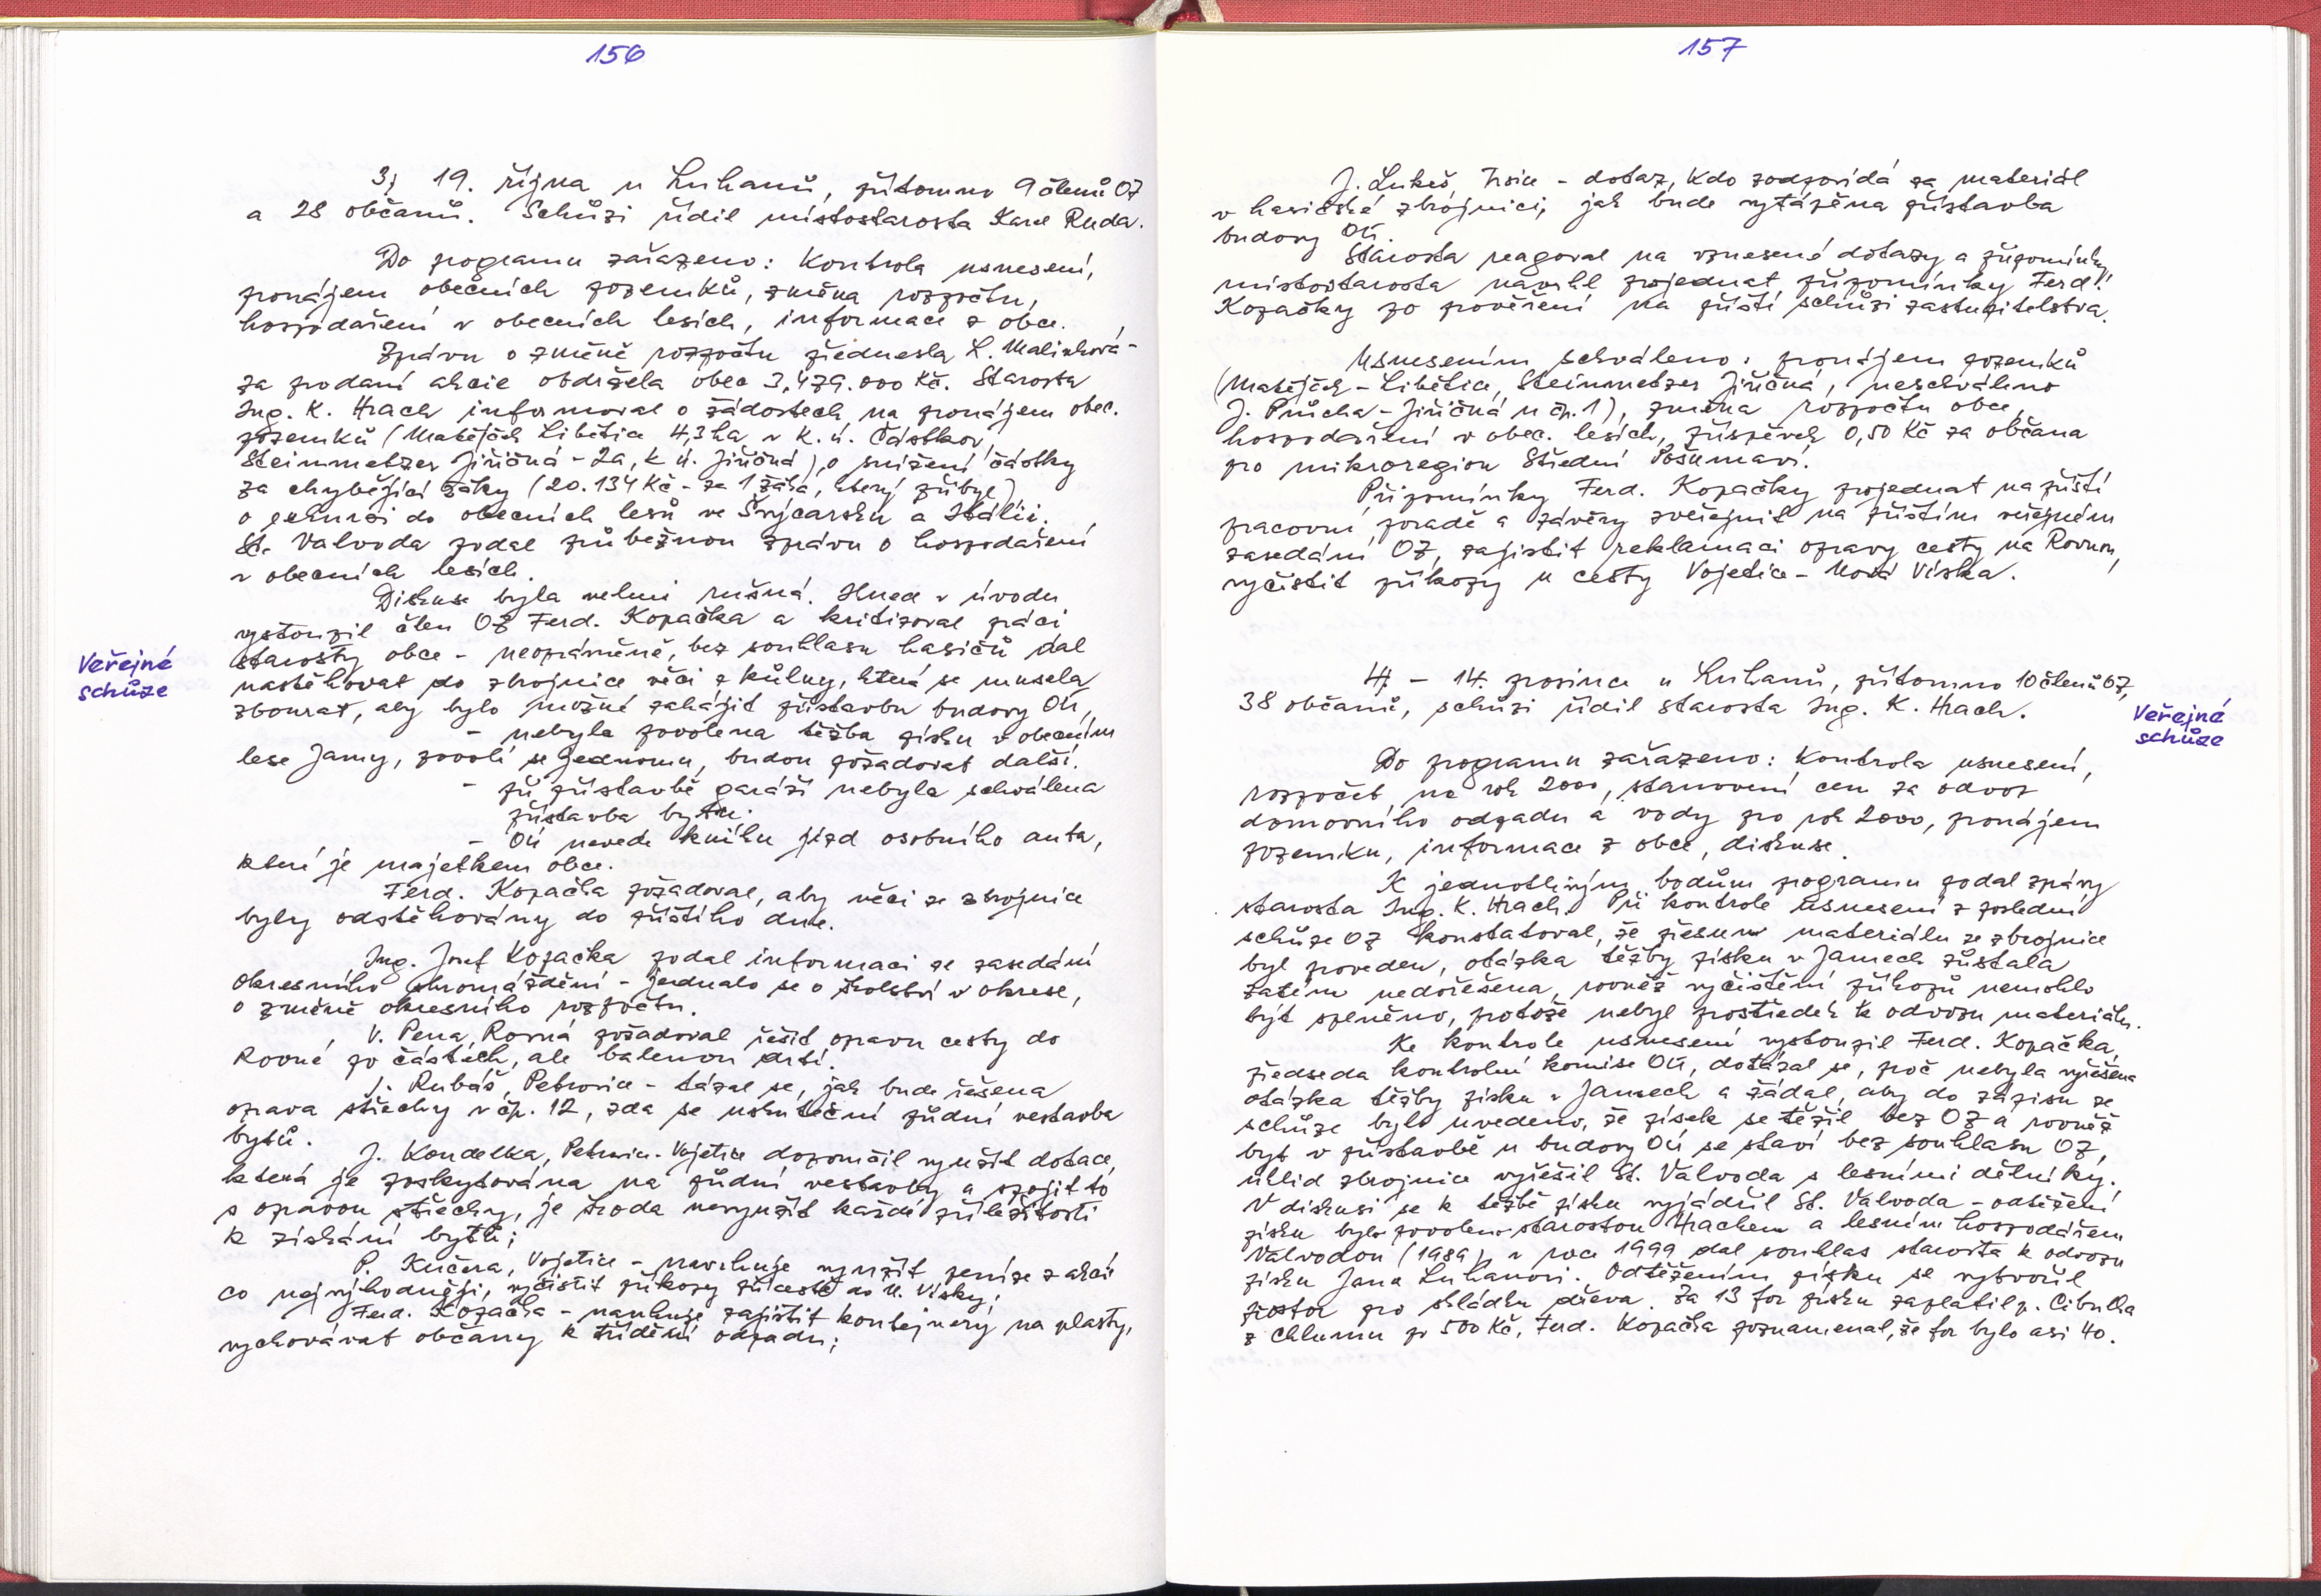 156
3) 19. října u Luhanů, přítomno 9 členů OZ
a 28 občanů. Schůzi řídil místostarosta Karel Ruda.
Do programu zařazeno: Kontrola usnesení,
pronájem obecních pozemků, změna rozpočtu,
hospodaření v obecních lesích, informace z obce.
Zprávu o změně rozpočtu přednesla L. Malinková -
za prodané akcie obdržela obec 3,479.000 Kč. Starosta
Ing. K. Hrach informoval o žádostech na pronájem obec.
pozemků (Matějček Libětice 4,3 ha v k.ú. Částkov,
Steinmetzer Jiřičná - 2a, k ú. Jiřičná), o snížení částky
za chybějící žáky (20.134 Kč - za 1 žáka, který přibyl)
o exkurzi do obecních lesů ve Švýcarsku a Itálii.
St. Valvoda podal průběžnou zprávu o hospodaření
v obecních lesích.
Diskuse byla velmi rušná. Hned v úvodu
vystoupil člen OZ Ferd. Kopačka a kritizoval práci
starosty obce - neoprávněně, bez souhlasu hasičů dal
Veřejné
schůze
nastěhovat do zbrojnice věci z kůlny, která se musela
zbourat, aby bylo možné zahájit přístavbu budovy OÚ,
- nebyla povolena těžba písku v obecním
lese Jamy, povolí se jednomu, budou požadovat další.
- při přístavbě garáží nebyla schválena
přístavba bytu.
- OÚ nevede knihu jízd osobního auta,
které je majetkem obce.
Ferd. Kopačka požadoval, aby věci ze zbrojnice
byly odstěhovány do příštího dne.
Ing. Josef Kopačka podal informaci ze zasedání
okresního shromáždění - jednalo se o školství v okrese,
o změně okresního rozpočtu.
V. Pena, Rovná požadoval řešit opravu cesty do
Rovné po částech, ale balenou drtí.
J. Rubáš, Petrovice - tázal se, jak bude řešena
oprava střechy v čp. 12, zda se uskuteční půdní vestavba
bytů.
J. Koudelka, Petrovice-Vojetice doporučil využít dotace,
která je poskytována na půdní vestavby a spojit to
s opravou střechy, je škoda nevyužít každé příležitosti
k získání bytů;
P. Kučera, Vojetice - navrhuje využít peníze z akcií
co nejvýhodněji, vyčistit příkopy při cestě do N. Vísky;
Ferd. Kopačka - navrhuje zajistit kontejnery na plasty,
vychovávat občany k třídění odpadu;
157
J. Lukeš, Trsice - dotaz, kdo zodpovídá za materiál
v hasičské zbrojnici, jak bude vytápěna přístavba
budovy OÚ.
Starosta reagoval na vznesené dotazy a připomínky,
místostarosta navrhl projednat připomínky Ferd.
Kopačky po prověření na příští schůzi zastupitelstva.
Usnesením schváleno: pronájem pozemků
(Matějček - Libětice, Steinmetzer Jiřičná, neschváleno
J. Průcha - Jiřičná u čp. 1), změna rozpočtu obce,
hospodaření v obec. lesích, příspěvek 0,50 Kč za občana
pro mikroregion Střední Pošumaví.
Připomínky Ferd. Kopačky projednat na příští
pracovní poradě a závěry zveřejnit na příštím veřejném
zasedání OZ, zajistit reklamaci opravy cesty na Rovnou,
vyčistit příkopy u cesty Vojetice - Nová Víska.
4) - 14. prosince u Luhanů, přítomno 10 členů OZ,
38 občanů, schůzi řídil starosta Ing. K. Hrach.
Veřejná
schůze
Do programu zařazeno: Kontrola usnesení,
rozpočet na rok 2000, stanovení cen za odvoz
domovního odpadu a vody pro rok 2000, pronájem
pozemku, informace z obce, diskuse.
K jednotlivým bodům programu podal zprávy
starosta Ing. K. Hrach. Při kontrole usnesení z poslední
schůze OZ konstatoval, že přesun materiálu ze zbrojnice
byl proveden, otázka těžby písku v Jamech zůstala
zatím nedořešena, rovněž vyčištění příkopů nemohlo
být splněno, protože nebyl prostředek k odvozu materiálu.
Ke kontrole usnesení vystoupil Ferd. Kopačka,
předseda kontrolní komise OÚ, dotázal se, proč nebyla vyřešena
otázka těžby písku v Jamech a žádal, aby do zápisu ze
schůze bylo uvedeno, že písek se těžil bez OZ a rovněž
byt v přístavbě u budovy OÚ se staví bez souhlasu OZ,
úklid zbrojnice vyřešil St. Valvoda s lesními dělníky.
V diskusi se k těžbě písku vyjádřil St. Valvoda - odtěžení
písku bylo povoleno starostou Hrachem a lesním hospodářem
Valvodou (1989), v roce 1999 dal souhlas starosta k odvozu
písku Janu Luhanovi. Odtěžením písku se vytvořil
prostor pro skládku dřeva. Za 13 for písku zaplatil p. Cibulka
z Chlumu po 500 Kč, Ferd. Kopačka poznamenal, že for bylo asi 40.